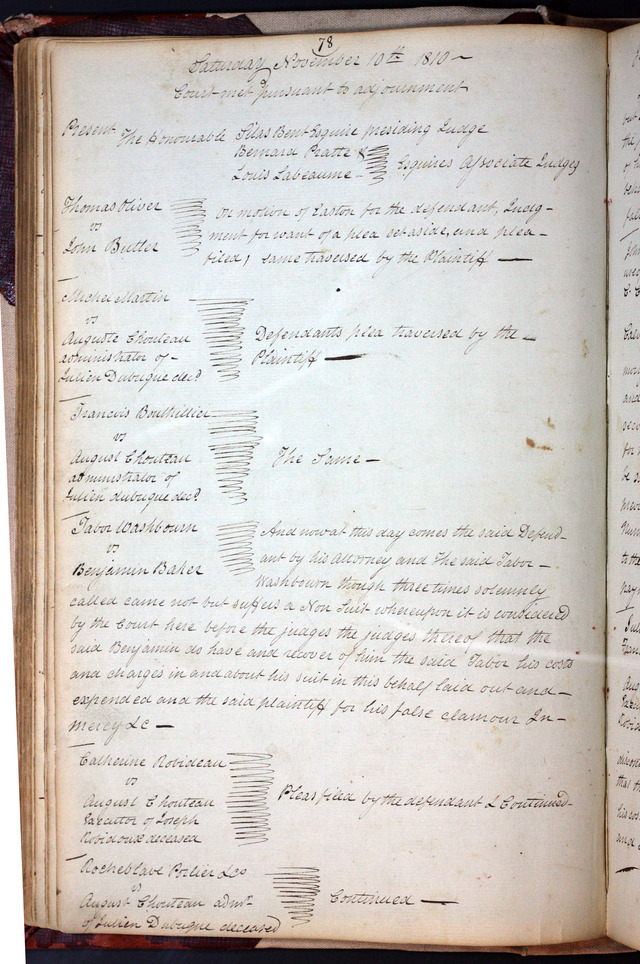 78
Saturday November 10th 1810 ~
Court met pursuant to adjournment
Present The Honourable Silas Bent Esquire presiding Judge
Bernard Pratte &
Louis Labeaume -
Esquires Associate Judges
Thomas Oliver
vs
John Butler
On motion of Easton for the defendant, Judg-
ment for want of a plea set aside, and plea -
filed, same traversed by the Plaintiff —
Michel Martin
vs
Auguste Chouteau
administrator of -
Julien Dubuque decd.
Defendants plea traversed by the -
Plaintiff —
Francois Bouthillier
vs
August Chouteau
administrator of
Julien dubuque decd.
The Same -
Tabor Washbourn
vs
Benjamin Baker
And now at this day comes the said Defend-
ant by his Attorney and The said Tabor -
Washbourn though three times solemnly
called came not but suffers a Non Suit whereupon it is considered
by the Court here before the judges the judges thereof that the
said Benjamin do have and recover of him the said Tabor his costs
and charges in and about his suit in this behalf laid out and -
expended and the said plaintiff for his false clamour In -
mercy &c —
Catherine Robideau
vs
August Chouteau
Executor of Joseph
Robidoux deceased
Pleas filed by the defendant & Continued-
Rocheblave Porlier &co
vs
August Chouteau admr.
of Julien Dubuque deceased
Continued —